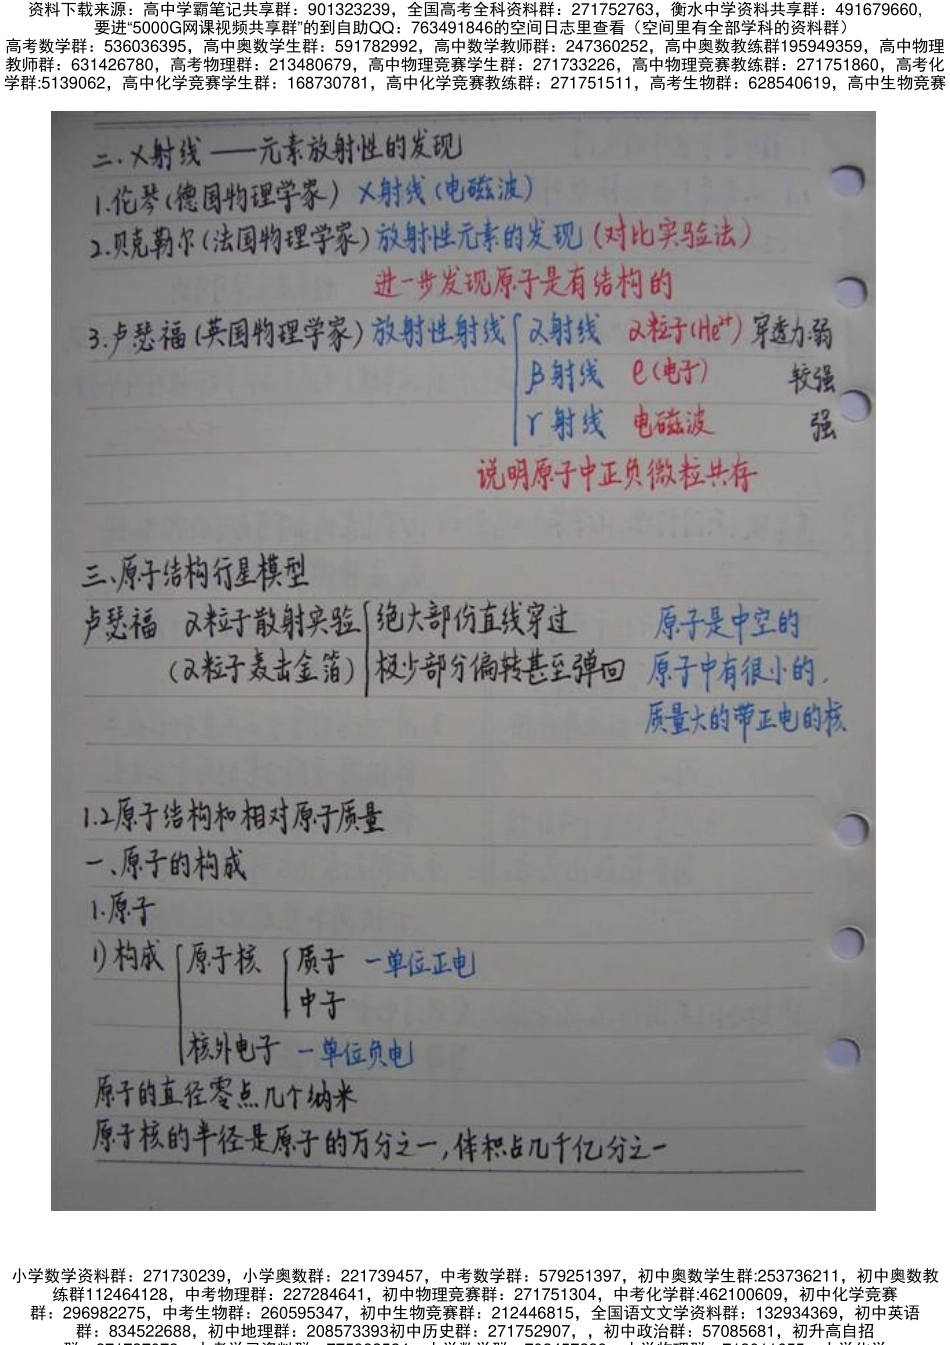 资料下载来源：高中学霸笔记共享群：901323239，全国高考全科资料群：271752763，衡水中学资料共享群：491679660,
要进“5000G网课视频共享群”的到自助QQ：763491846的空间日志里查看（空间里有全部学科的资料群）
高考数学群：536036395，高中奥数学生群：591782992，高中数学教师群：247360252，高中奥数教练群195949359，高中物理
教师群：631426780，高考物理群：213480679，高中物理竞赛学生群：271733226，高中物理竞赛教练群：271751860，高考化
学群:5139062，高中化学竞赛学生群：168730781，高中化学竞赛教练群：271751511，高考生物群：628540619，高中生物竞赛
二、X射线——元素放射性的发现
1.伦琴(德国物理学家) X射线(电磁波)
2.贝克勒尔(法国物理学家)放射性元素的发现(对比实验法)
进一步发现原子是有结构的
3.卢瑟福(英国物理学家)放射性射线 α射线 α粒子(He²⁺) 穿透力:弱
β射线 e(电子) 较强
γ射线 电磁波 强
说明原子中正负微粒共存
三、原子结构行星模型
卢瑟福 α粒子散射实验 绝大部份直线穿过 原子是中空的
(α粒子轰击金箔) 极少部分偏转甚至弹回 原子中有很小的,
质量大的带正电的核
1.2原子结构和相对原子质量
一、原子的构成
1.原子
1)构成 原子核 质子 一单位正电
中子
核外电子 一单位负电
原子的直径零点几个纳米
原子核的半径是原子的万分之一,体积占几千亿分之一
小学数学资料群：271730239，小学奥数群：221739457，中考数学群：579251397，初中奥数学生群:253736211，初中奥数教
练群112464128，中考物理群：227284641，初中物理竞赛群：271751304，中考化学群:462100609，初中化学竞赛
群：296982275，中考生物群：260595347，初中生物竞赛群：212446815，全国语文文学资料群：132934369，初中英语
群：834522688，初中地理群：208573393初中历史群：271752907，，初中政治群：57085681，初升高自招